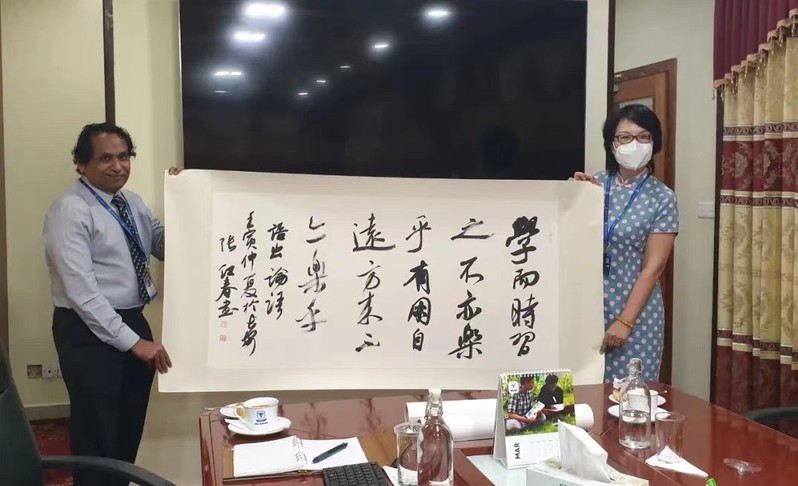 學而時習
之不亦樂
乎有朋自
遠方來不
亦樂乎
語出論語
壬寅仲夏於
張红春書
MAR